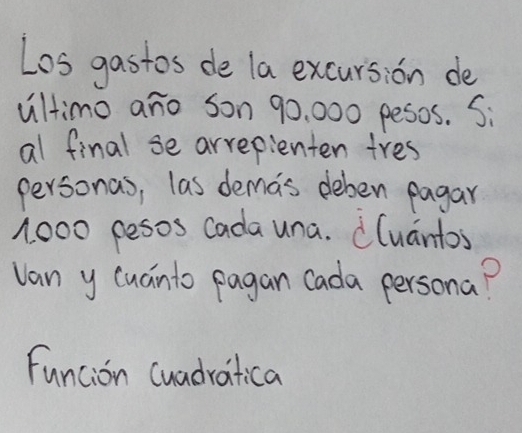 Los gastos de la excursión de
último año son 90.000 pesos. Si
al final se arrepienten tres
personas, las demás deben pagar
1.000 pesos cada una. ¿Cuántos
Van y cuánto pagan cada persona?
Función Cuadrática